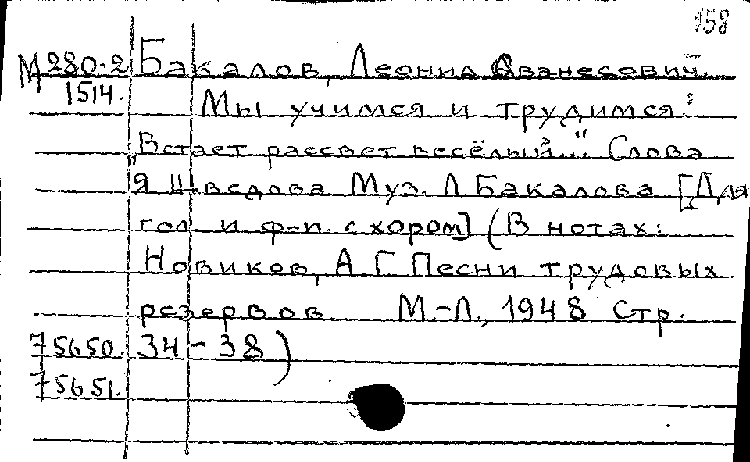 158
М 280-2 Бакалов, Леонид Аванесович.
1514. Мы учимся и трудимся:
„Встает рассвет весёлый..." Слова
Я Шведова Муз. Л Бакалова [Для
гол и ф-п. с хором] (В нотах:
Новиков, А Г Песни трудовых
резервов М.-Л., 1948 Стр.
75650. 34-38)
75651.